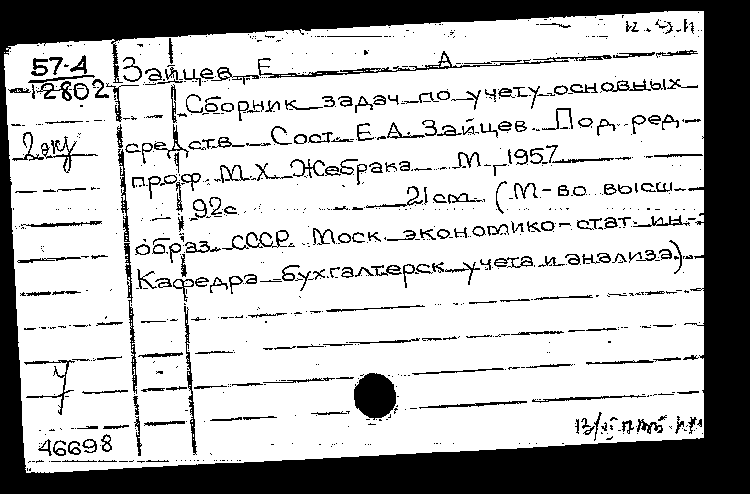 57-4
12802
2 экз
Зайцев, Е А
Сборник задач по учету основных
средств Сост. Е. А. Зайцев. Под ред.
проф. М. Х. Жебрака М., 1957
92с 21см (М-во высш
образ. СССР. Моск. экономико-стат. ин-т
Кафедра бухгалтерск. учета и анализа)
46698